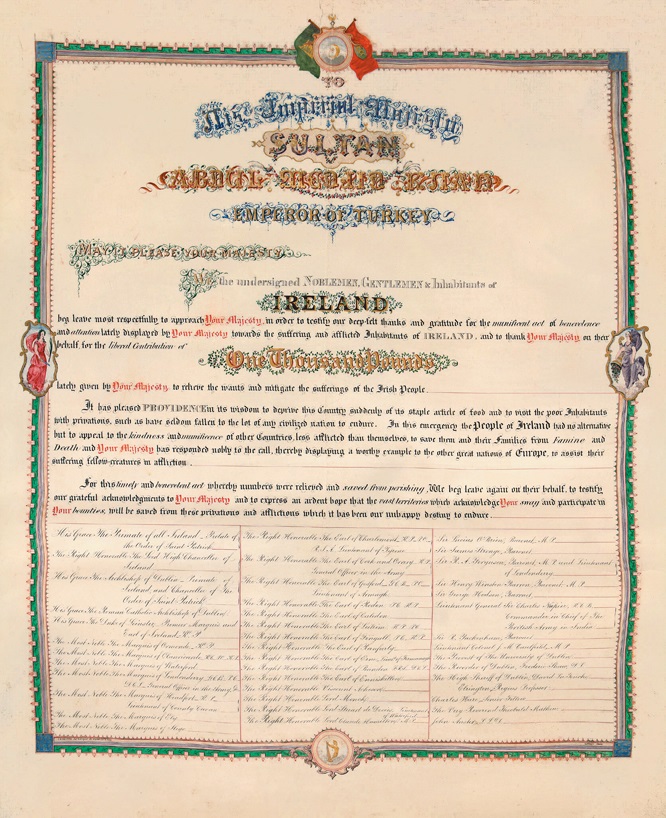 TO
His Imperial Majesty
SULTAN
ABDUL MEDJID KHAN
EMPEROR OF TURKEY
MAY IT PLEASE YOUR MAJESTY
We the undersigned NOBLEMEN, GENTLEMEN & Inhabitants of
IRELAND
beg leave most respectfully to approach Your Majesty, in order to testify our deep-felt thanks and gratitude for the munificent act of benevolence
and attention lately displayed by Your Majesty towards the suffering and afflicted Inhabitants of IRELAND, and to thank Your Majesty on their
behalf, for the liberal Contribution of
One Thousand Pounds
lately given by Your Majesty, to relieve the wants and mitigate the sufferings of the Irish People.
It has pleased PROVIDENCE in its wisdom to deprive this Country suddenly of its staple article of food and to visit the poor Inhabitants
with privations, such as have seldom fallen to the lot of any civilized nation to endure. In this emergency the People of Ireland had no alternative
but to appeal to the kindness and munificence of other Countries, less afflicted than themselves, to save them and their Families from Famine and
Death and Your Majesty has responded nobly to the call, thereby displaying a worthy example to the other great nations of Europe, to assist their
suffering fellow-creatures in affliction.
For this timely and benevolent act whereby numbers were relieved and saved from perishing, We beg leave again on their behalf, to testify
our grateful acknowledgments to Your Majesty and to express an ardent hope that the vast territories which acknowledge Your sway and participate in
Your bounties, will be saved from those privations and afflictions which it has been our unhappy destiny to endure.
His Grace The Primate of all Ireland, Prelate of
the Order of Saint Patrick
The Right Honorable The Lord High Chancellor of
Ireland
His Grace The Archbishop of Dublin, Primate of
Ireland, and Chancellor of The
Order of Saint Patrick
His Grace The Roman Catholic Archbishop of Dublin
His Grace The Duke of Leinster, Premier Marquis and
Earl of Ireland, K.P.
The Most Noble The Marquis of Ormonde, K.P.
The Most Noble The Marquis of
The Most Noble The Marquis of Waterford
The Most Noble The Marquis of Londonderry,
General Officer in the Army
The Most Noble The Marquis of Headfort,
Lieutenant of County Cavan
The Most Noble The Marquis of Ely
The Most Noble The Marquis of Sligo
The Right Honorable The Earl of Charlemont, K.P.
Lieutenant of Tyrone
The Right Honorable The Earl of Cork and Orrery, K.P.
General Officer in the Army
The Right Honorable The Earl of Gosford,
Lieutenant of Armagh
The Right Honorable The Earl of Roden
The Right Honorable The Earl of
The Right Honorable The Earl of
The Right Honorable The Earl of Fingall
The Right Honorable The Earl of Ranfurly
The Right Honorable The Earl of
The Right Honorable The Earl of
The Right Honorable The Earl of
The Right Honorable Viscount
The Right Honorable Lord
The Right Honorable Lord Stuart de Decies, Lieutenant
of Waterford
The Right Honorable Lord Claude Hamilton, M.P.
Sir Lucius O'Brien, Baronet, M.P.
Sir James Stronge, Baronet
Sir R. A. Ferguson, Baronet, M.P. and Lieutenant
of Londonderry
Sir Henry Winston Barron, Baronet, M.P.
Sir George Hodson, Baronet
Lieutenant General Sir Charles Napier,
Commander in Chief of The
British Army in India
Baronet
Lieutenant Colonel
of Dublin
The Recorder of Dublin, Frederic Shaw, M.P.
The High Sheriff of Dublin, David La Touche